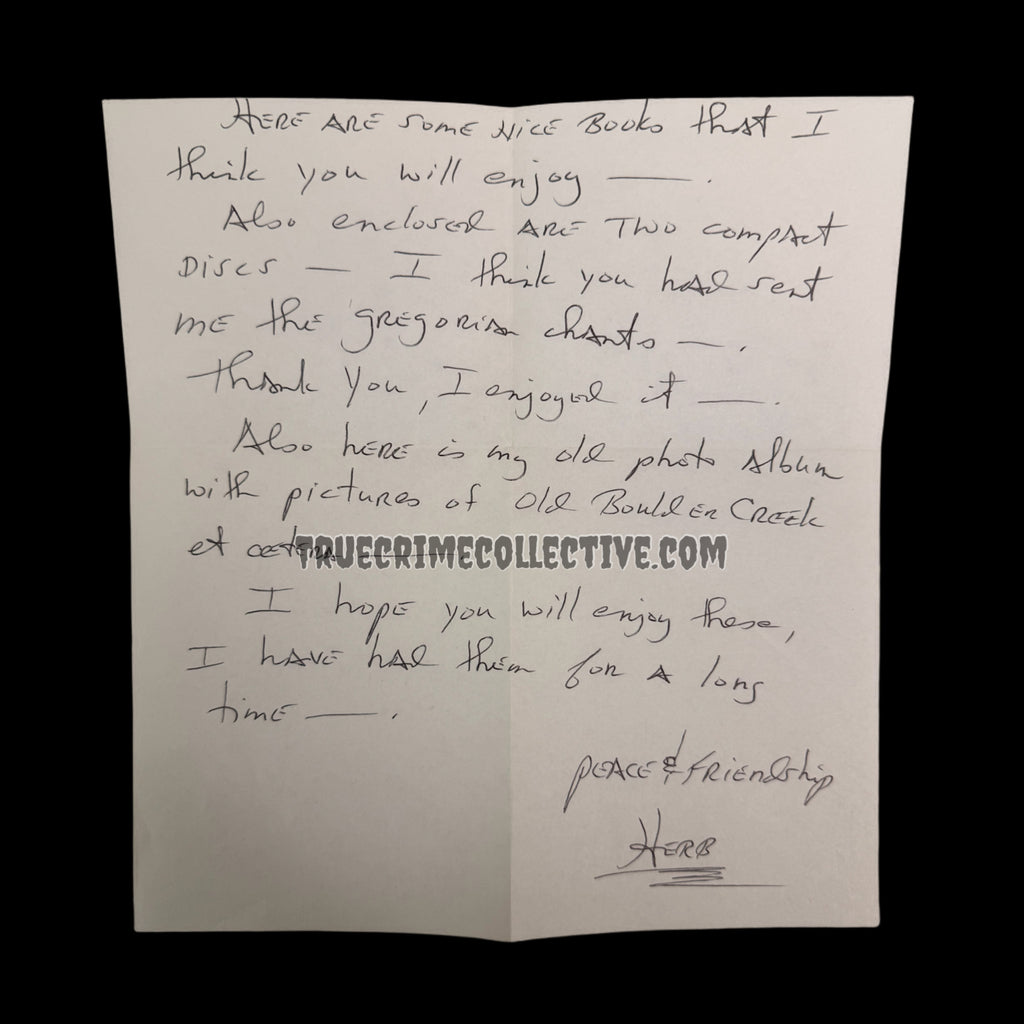 Here are some nice Books that I
think you will enjoy —.
Also enclosed are two compact
Discs — I think you had sent
me the gregorian chants —.
Thank you, I enjoyed it —.
Also here is my old photo album
with pictures of old Boulder Creek
et cetera —
TRUECRIMECOLLECTIVE.COM
I hope you will enjoy these,
I have had them for a long
time —.
Peace & Friendship
Herb